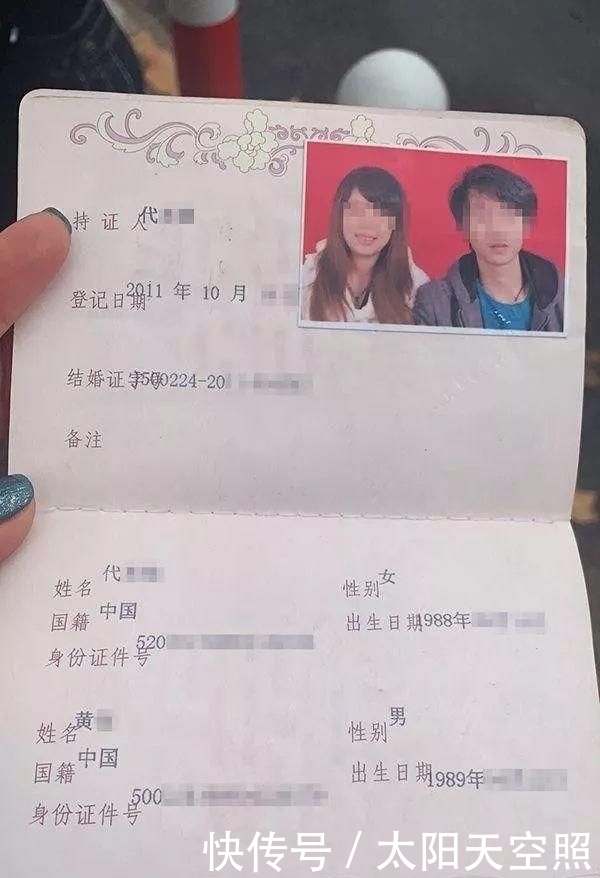 持证人 代
登记日期 2011 年 10 月
结婚证字号 J500224-20
备注
姓名 代 性别 女
国籍 中国 出生日期 1988年
身份证件号 520
姓名 黄 性别 男
国籍 中国 出生日期 1989年
身份证件号 500
快传号 / 太阳天空照